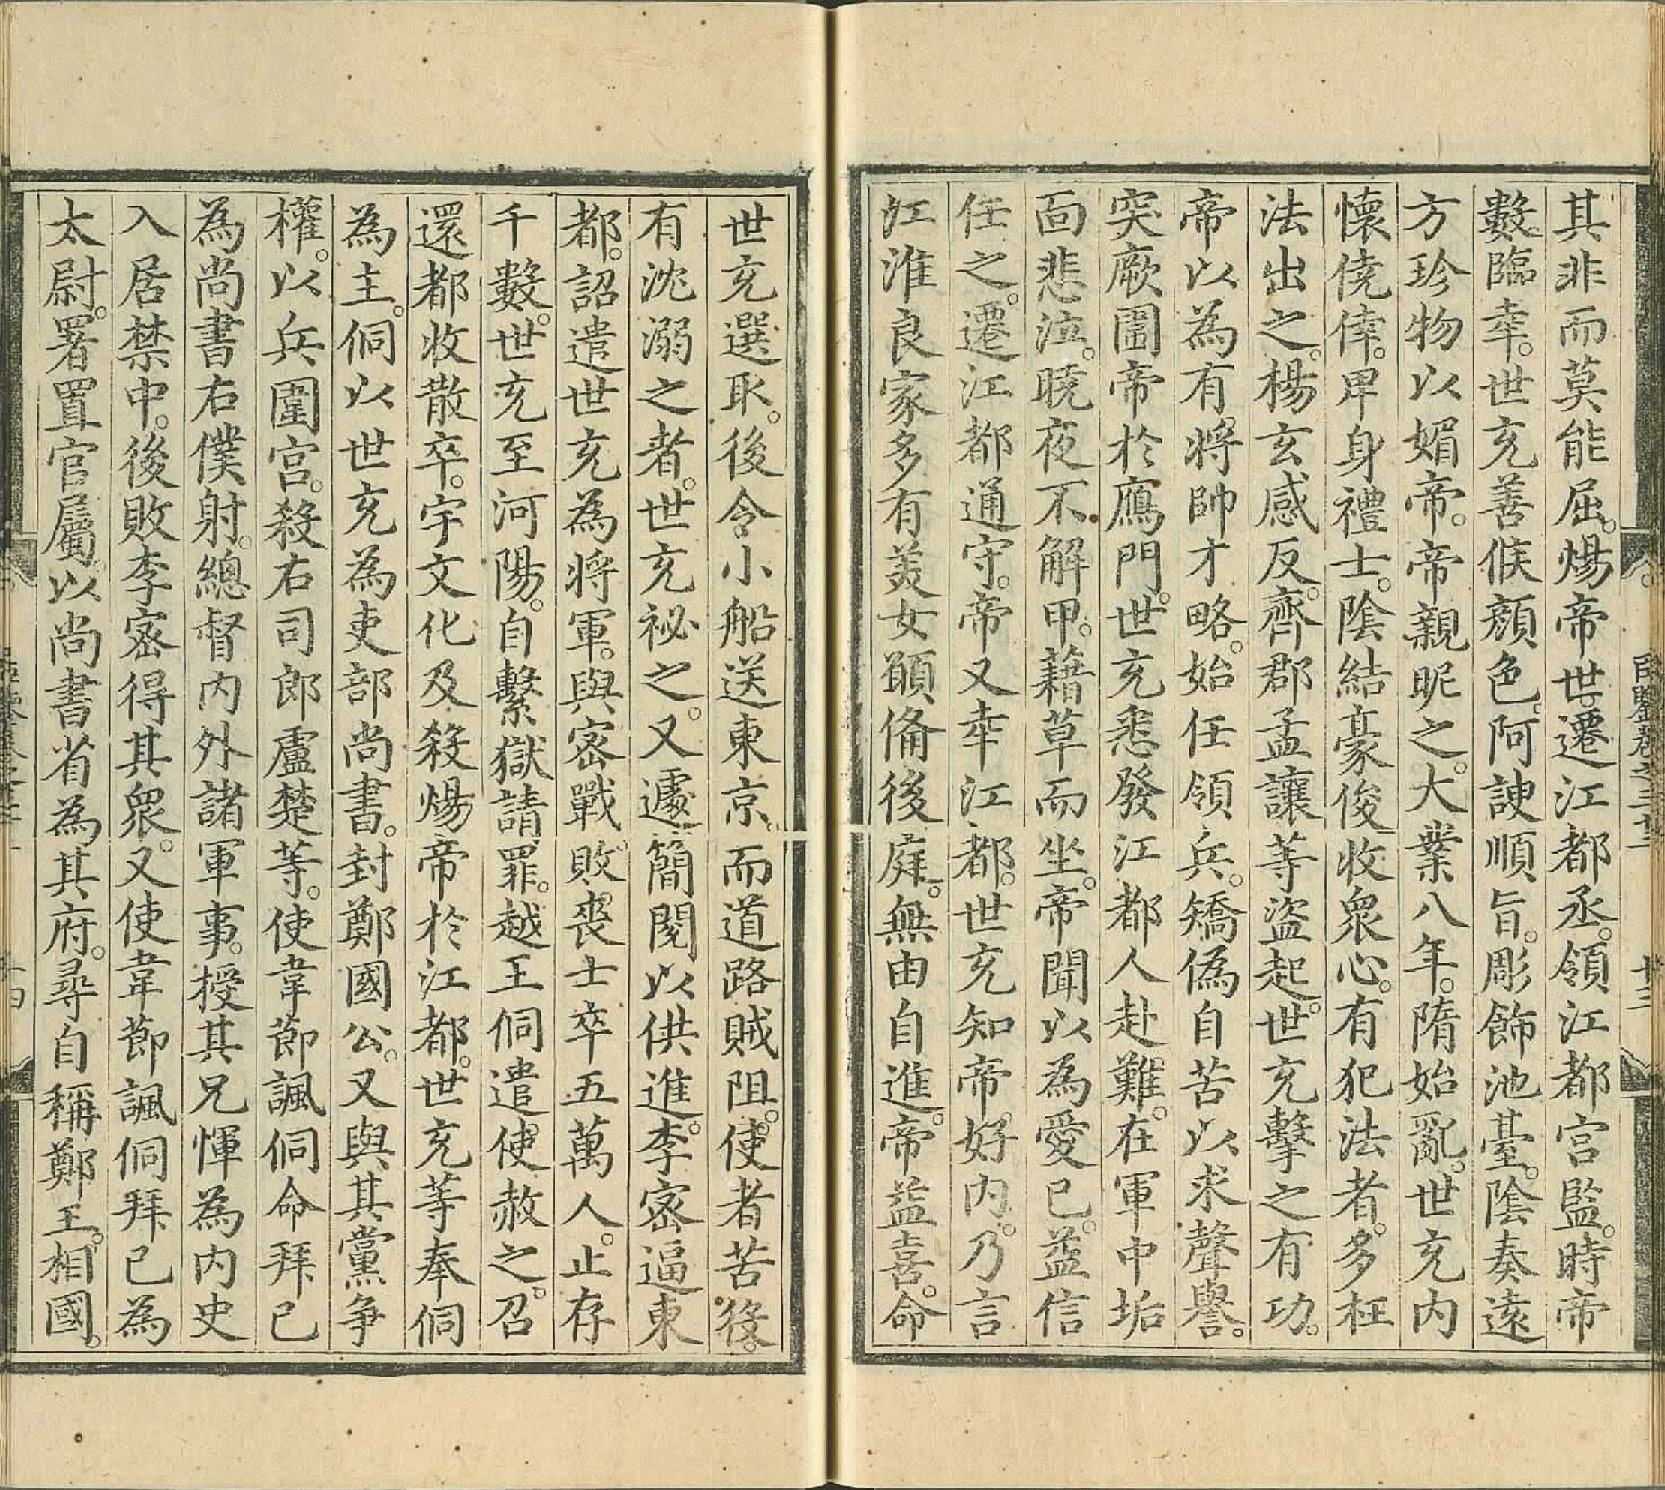 其非而莫能屈。煬帝世。遷江都丞。領江都宮監。時帝
數。臨幸。世充善候顏色。阿諛順旨。彫飾池臺。陰奏遠
方珍物以媚帝。帝親昵之。大業八年。隋始亂。世充內
懷僥倖。卑身禮士。陰結豪俊收衆心。有犯法者。多枉
法出之。楊玄感反。齊郡孟讓等盜起。世充擊之有功。
帝以為有將帥才略。始任領兵。矯偽自苦以求聲譽。
突厥圍帝於鴈門。世充悉發江都人赴難。在軍中垢
面悲泣。曉夜不解甲。藉草而坐。帝聞以為愛已。益信
任之。遷江都通守。帝又幸江都。世充知帝。好內。乃言
江淮良家多有美女願備後庭。無由自進。帝益喜。命
世充選取。後令小船送東京。而道路賊阻。使者苦役。
有沈溺之者。世充祕之。又遽簡閱以供進。李密逼東
都。詔遣世充為將軍。與密戰敗。喪士卒五萬人。止存
千數。世充至河陽。自繫獄請罪。越王侗遣。使赦之。召
還都收散卒。宇文化及殺煬帝於江都。世充等奉侗
為主。侗以世充為吏部尚書。封鄭國公。又與其黨爭
權。以兵圍宮。殺右司郎盧楚等。使韋節諷侗命拜已
為尚書右僕射。總督內外諸軍事。授其兄惲為內史
入居禁中。後敗李密得其衆。又使韋節諷侗拜已為
太尉。署置官屬。以尚書省為其府。尋自稱鄭王。相國。